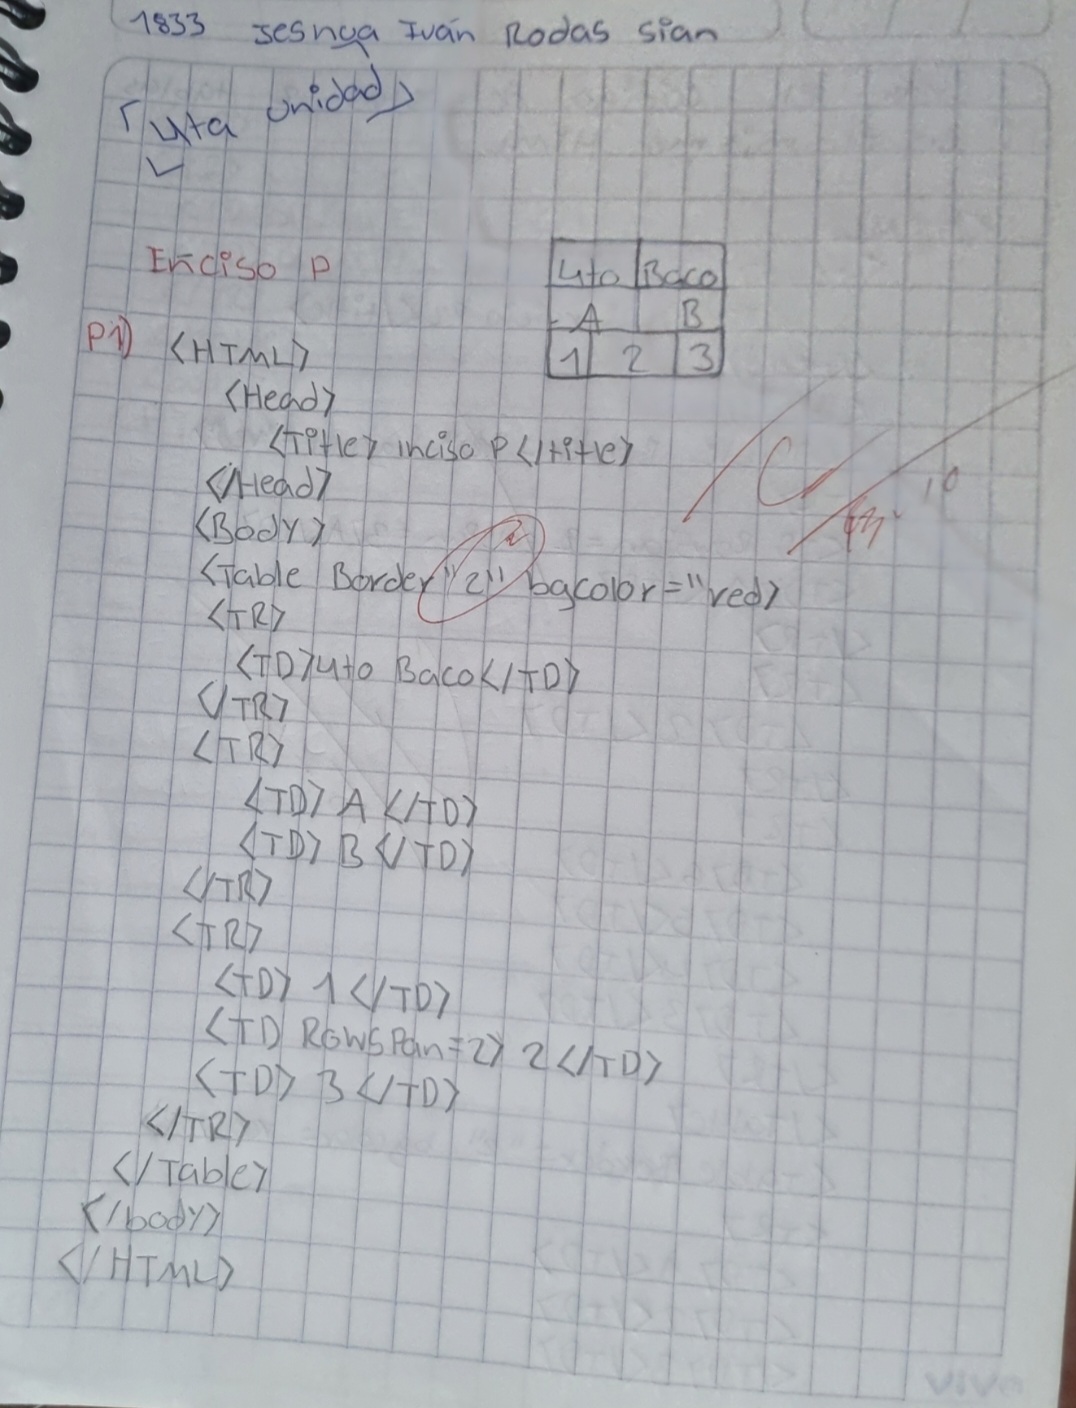 1833 Jesnya Iván Rodas Sian
4ta unidad
Enciso P
4to Baco
A B
1 2 3
P1) <HTML>
<Head>
<Title> inciso P</title>
</Head>
<Body>
<Table Border "2" bgcolor="red>
<TR>
<TD>4to Baco</TD>
</TR>
<TR>
<TD> A </TD>
<TD> B </TD>
</TR>
<TR>
<TD> 1 </TD>
<TD RowsPan=2> 2 </TD>
<TD> 3 </TD>
</TR>
</Table>
</body>
</HTML>
vivo